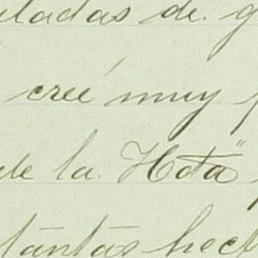 ladas de g
creé muy
de la "Hota"
tantas hect